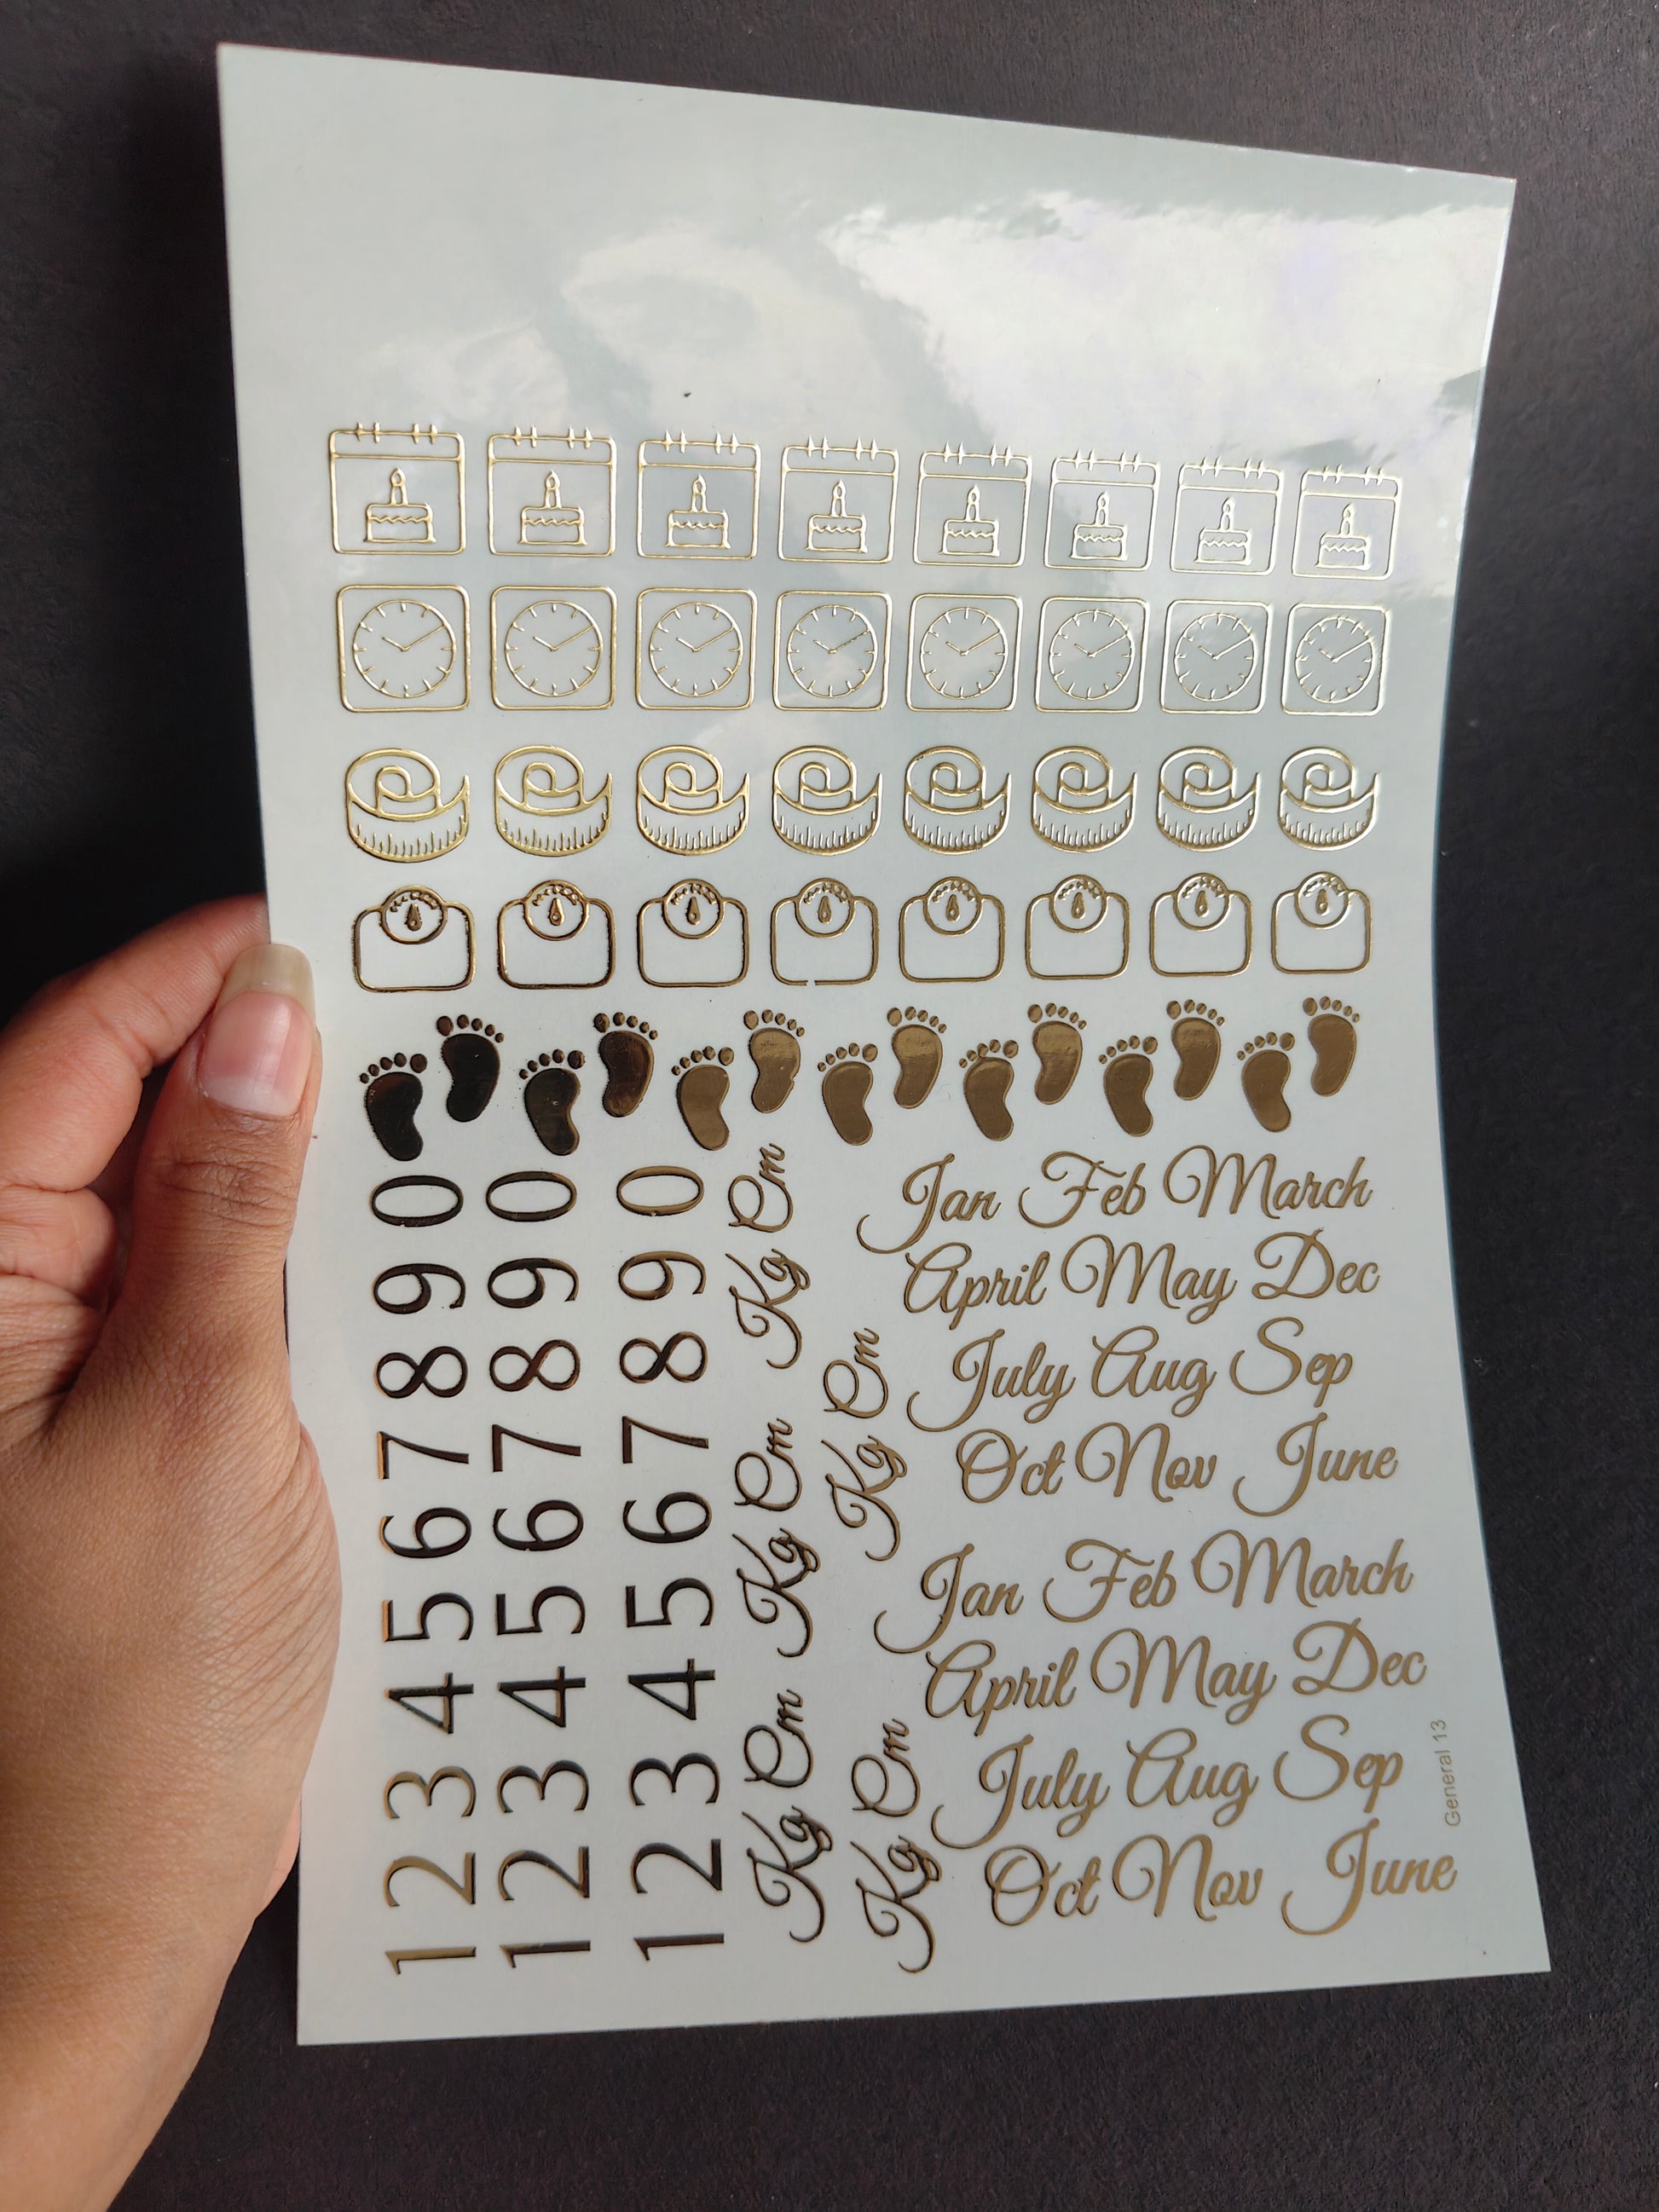 1 2 3 4 5 6 7 8 9 0
1 2 3 4 5 6 7 8 9 0
1 2 3 4 5 6 7 8 9 0
Kg Cm Kg Cm Kg Cm
Kg Cm Kg Cm
Jan Feb March
April May Dec
July Aug Sep
Oct Nov June
Jan Feb March
April May Dec
July Aug Sep
Oct Nov June
General 13